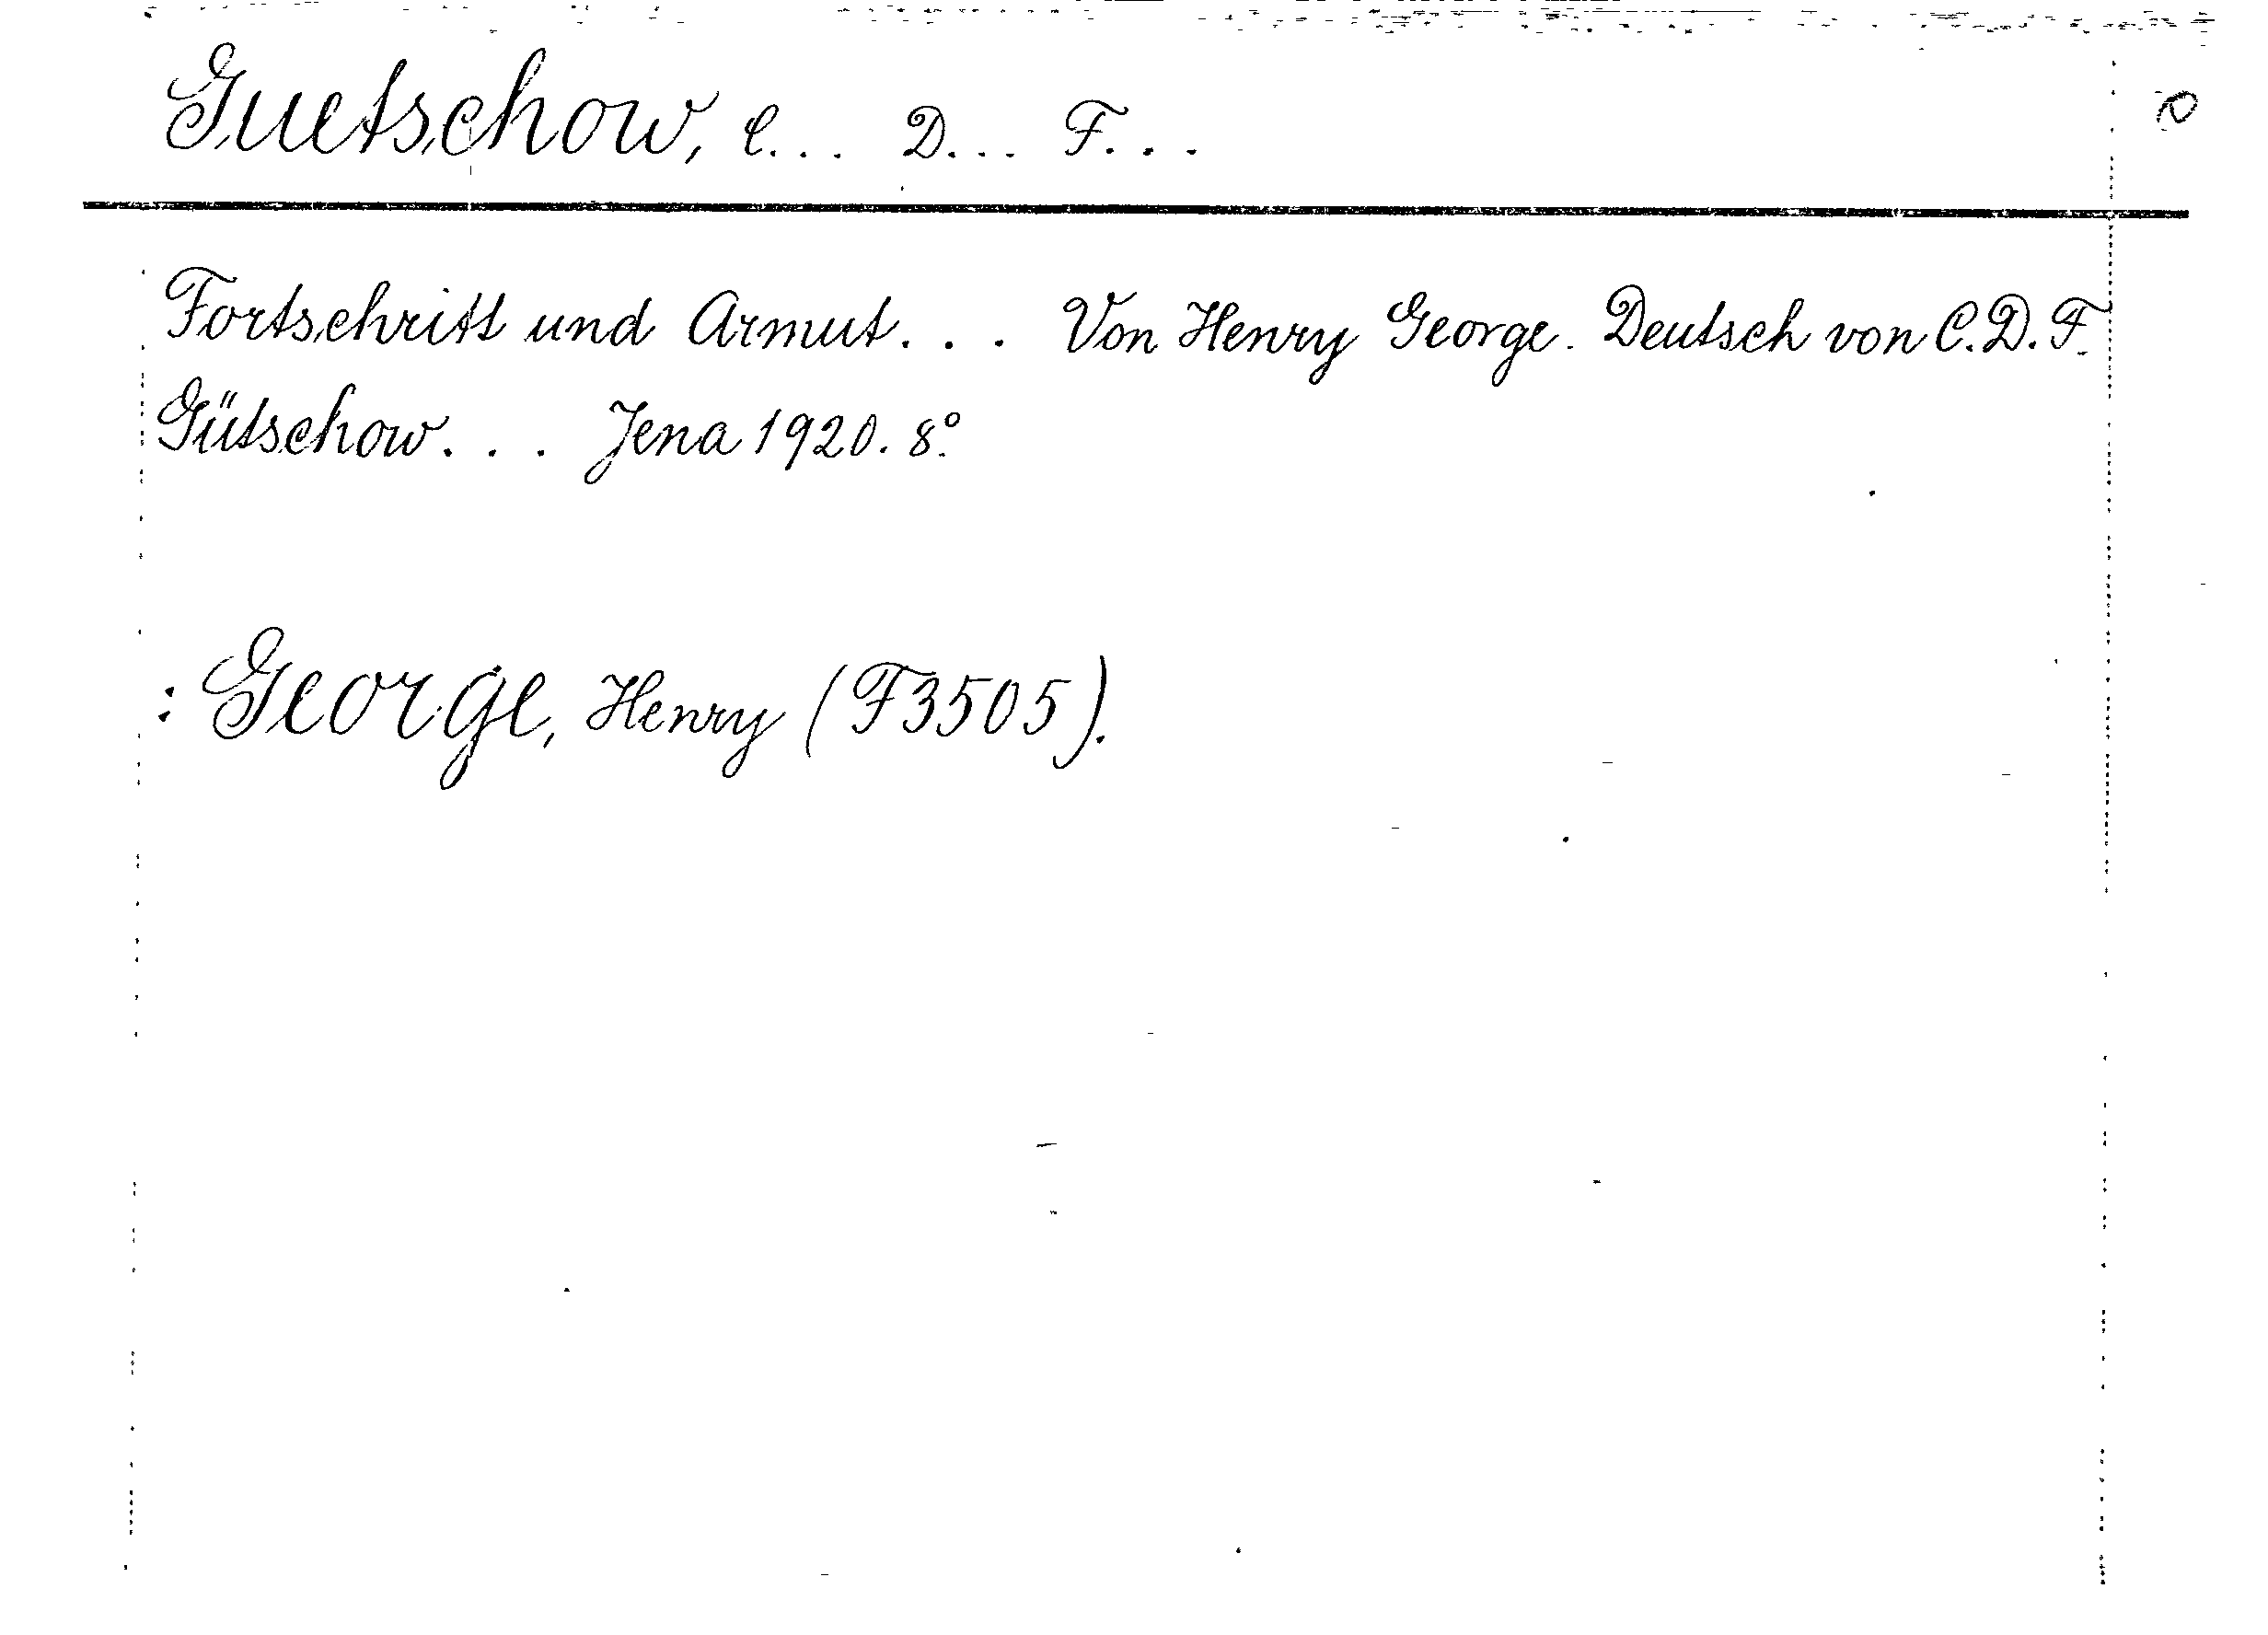 Guetschow, C... D... F...
Fortschritt und Armut... Von Henry George. Deutsch von C.D.F.
Gütschow... Jena 1920. 8°.
: George, Henry (F3505).